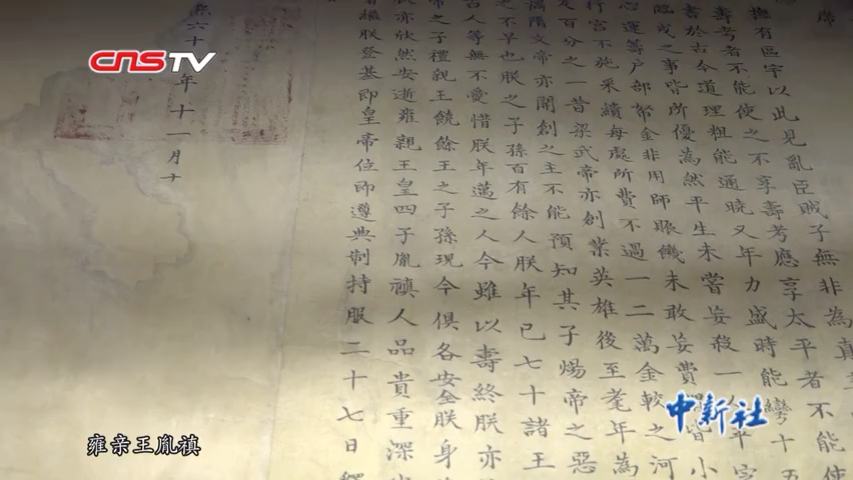 CNSTV
撫有區宇以此見亂臣賊子無非為真
壽考者不能使之不享壽考應享太平者不能使
書於古今道理粗能通曉又年力盛時能彎十五
臨戎之事皆所優為然平生未嘗妄殺一人平定
心運籌户部帑金非用師賑饑未敢妄費謂皆小
行宮不施采繢每處所費不過一二萬金較之河
及百分之一昔梁武帝亦創業英雄後至耄年為
隋文帝亦開創之主不能預知其子煬帝之惡
之不早也朕之子孫百有餘人朕年已七十諸王
人等無不愛惜朕年邁之人今雖以壽終朕亦
帝之子禮親王饒餘王之子孫現今俱各安全朕身
亦欣然安逝雍親王皇四子胤禛人品貴重深
繼朕登基即皇帝位即遵典制持服二十七日釋
熙六十年十一月十
中新社
雍亲王胤禛